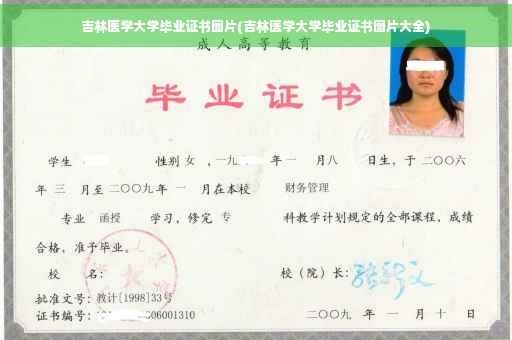 吉林医学大学毕业证书图片(吉林医学大学毕业证书图片大全)
成人高等教育
毕业证书
学生 性别 女 ,一九 年一 月八 日生,于二〇〇六
年 三 月至二〇〇九年 一 月在本校 财务管理
专业 函授 学习,修完 专 科教学计划规定的全部课程,成绩
合格,准予毕业。
校 名: 校(院)长:
批准文号:教计[1998]33号
证书编号: 06001310 二〇〇九 年 一 月 十 日